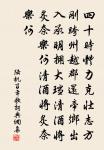 四十時體力克壯志方
剛跨州越郡還帝鄉出
入承明擁大璫清酒將
炙奈樂何清酒將炙奈
樂何
陸機百年歌詞典網